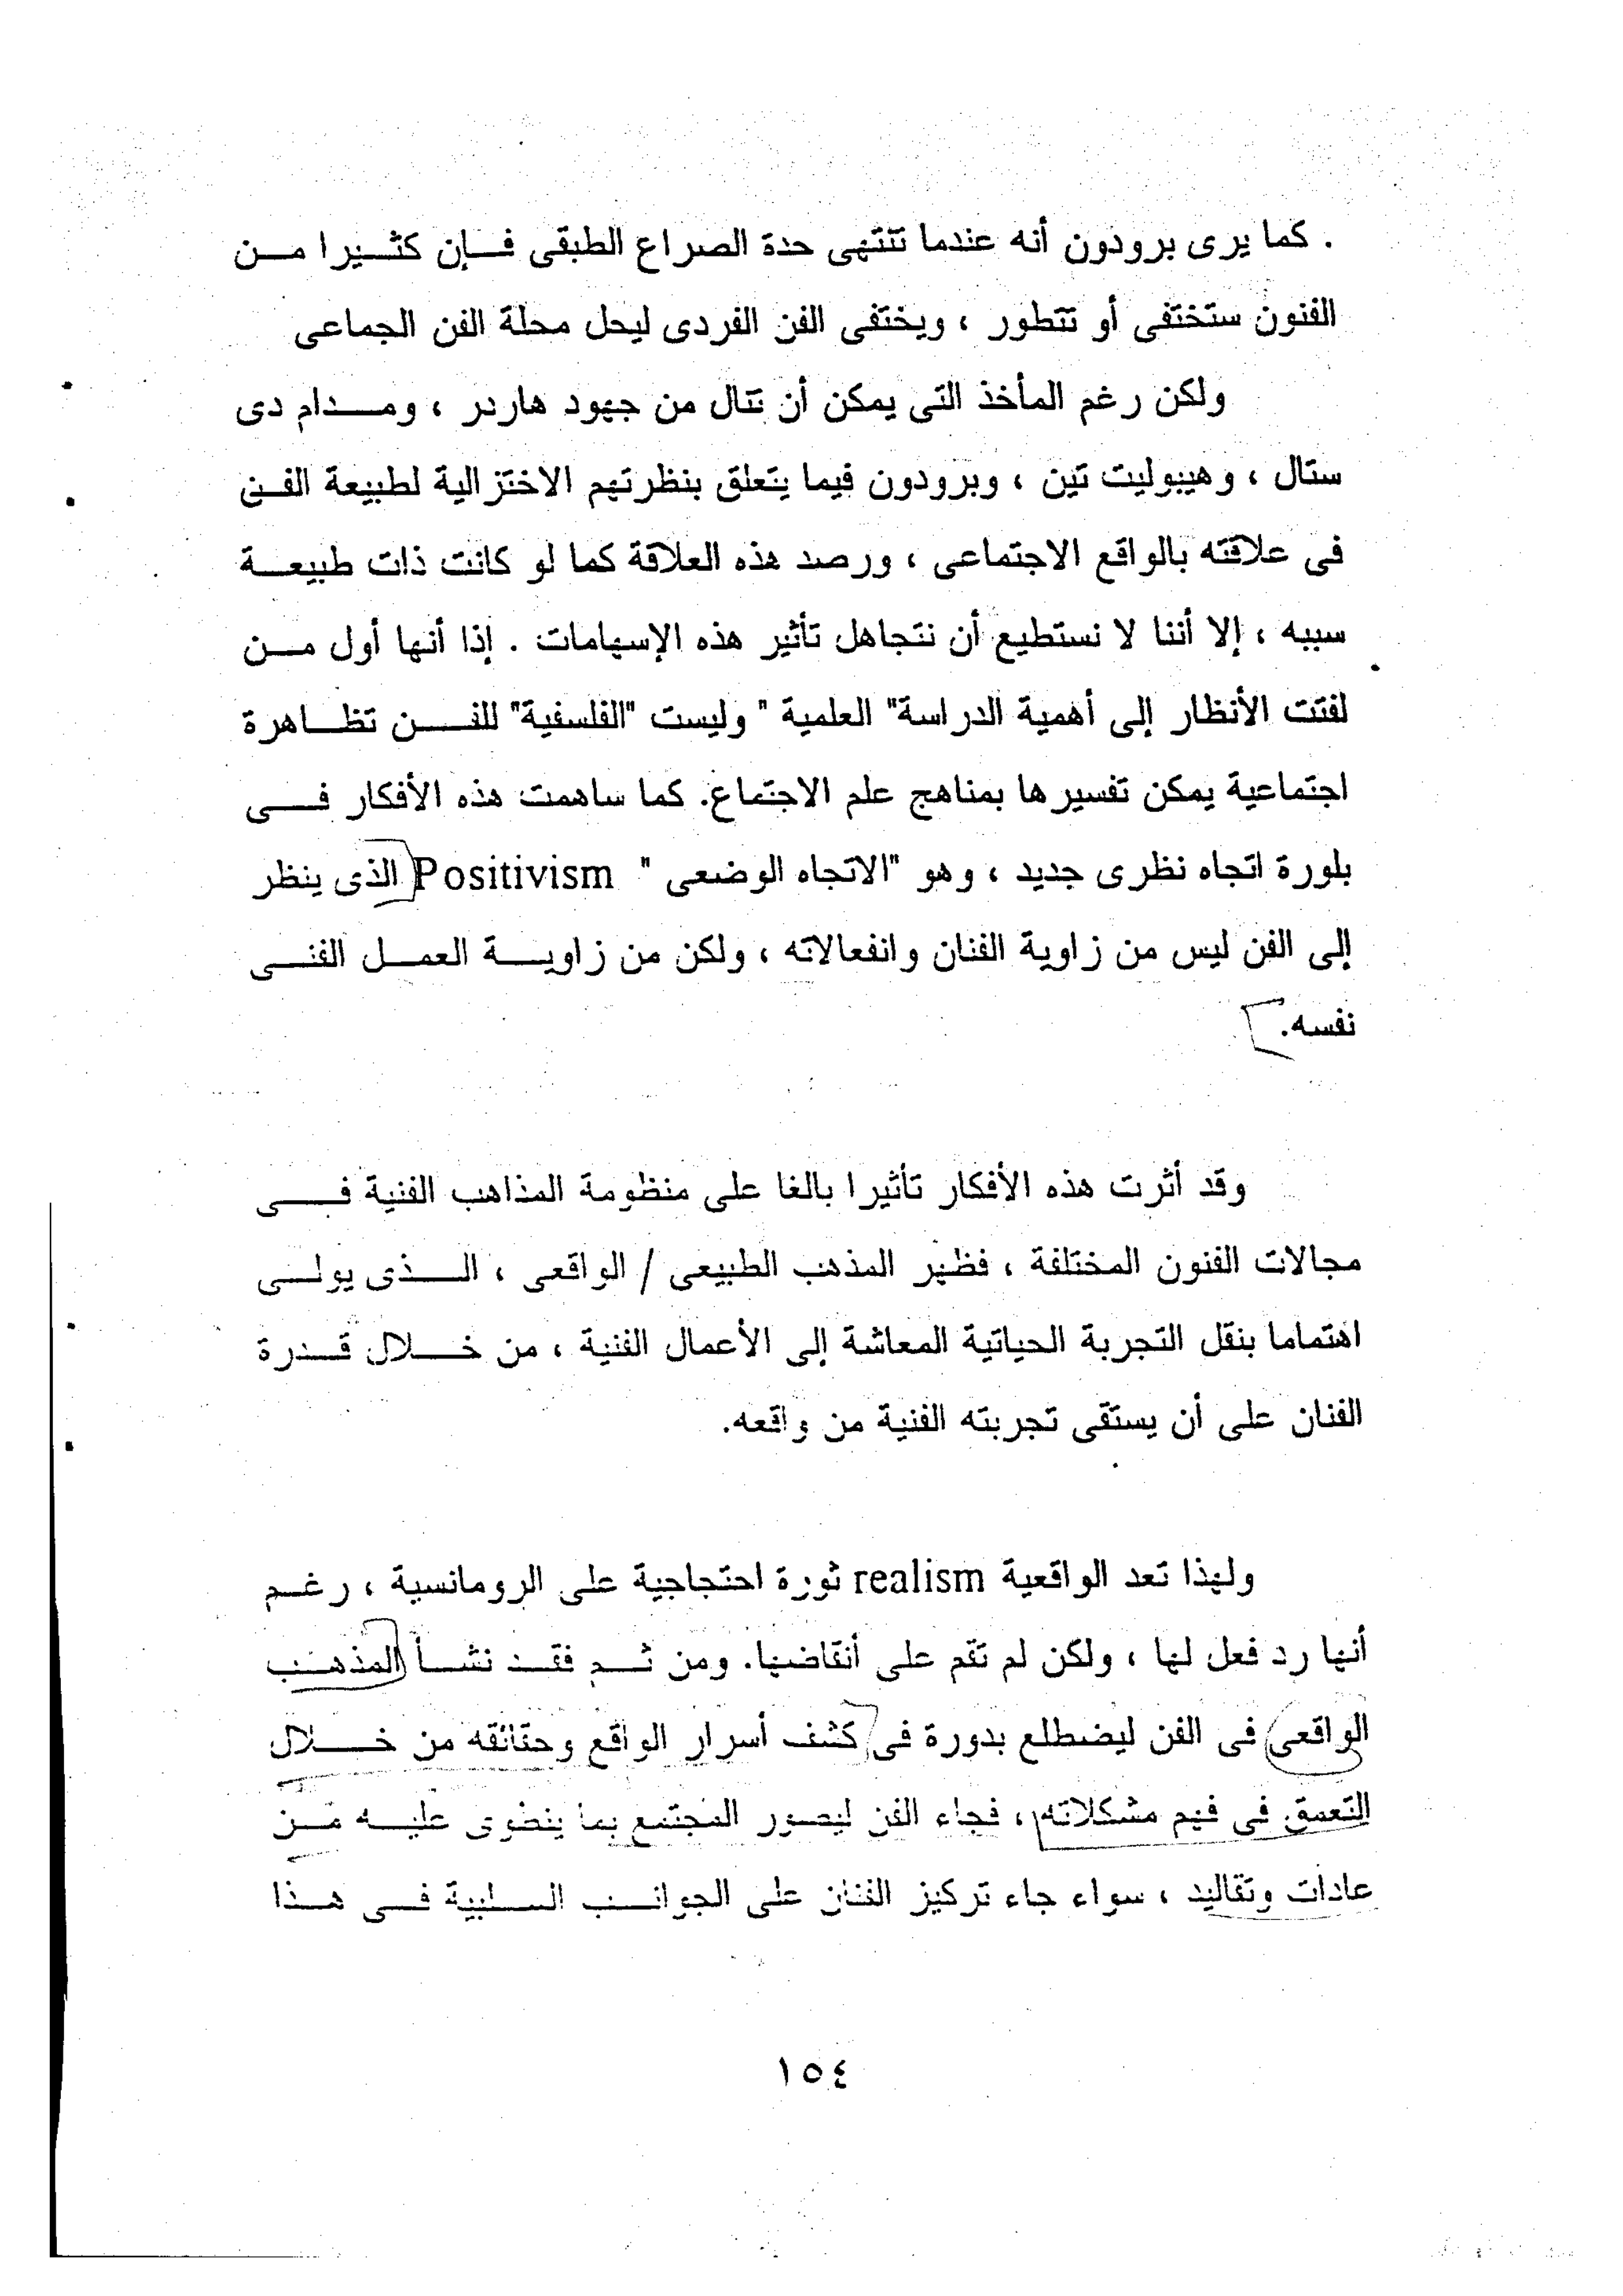 . كما يرى برودون أنه عندما تنتهى حدة الصراع الطبقى فإن كثيرا من
الفنون ستختفى أو تتطور ، ويختفى الفن الفردى ليحل محلة الفن الجماعى
ولكن رغم المأخذ التى يمكن أن تنال من جهود هاردر ، ومدام دى
ستال ، وهيبوليت تين ، وبرودون فيما يتعلق بنظرتهم الاختزالية لطبيعة الفن
فى علاقته بالواقع الاجتماعى ، ورصد هذه العلاقة كما لو كانت ذات طبيعة
سببه ، إلا أننا لا نستطيع أن نتجاهل تأثير هذه الإسهامات . إذا أنها أول من
لفتت الأنظار إلى أهمية الدراسة" العلمية " وليست "الفلسفية" للفن تظاهرة
اجتماعية يمكن تفسيرها بمناهج علم الاجتماع. كما ساهمت هذه الأفكار فى
بلورة اتجاه نظرى جديد ، وهو "الاتجاه الوضعى " Positivism الذى ينظر
إلى الفن ليس من زاوية الفنان وانفعالاته ، ولكن من زاوية العمل الفنى
نفسه.
وقد أثرت هذه الأفكار تأثيرا بالغا على منظومة المذاهب الفنية فى
مجالات الفنون المختلفة ، فظهر المذهب الطبيعى / الواقعى ، الذى يولى
اهتماما بنقل التجربة الحياتية المعاشة إلى الأعمال الفنية ، من خلال قدرة
الفنان على أن يستقى تجربته الفنية من واقعه.
ولهذا تعد الواقعية realism ثورة احتجاجية على الرومانسية ، رغم
أنها رد فعل لها ، ولكن لم تقم على أنقاضها. ومن ثم فقد نشأ المذهب
الواقعى فى الفن ليضطلع بدورة فى كشف أسرار الواقع وحقائقه من خلال
التعمق فى فهم مشكلاته ، فجاء الفن ليصور المجتمع بما ينطوى عليه من
عادات وتقاليد ، سواء جاء تركيز الفنان على الجوانب السلبية فى هذا
١٥٤